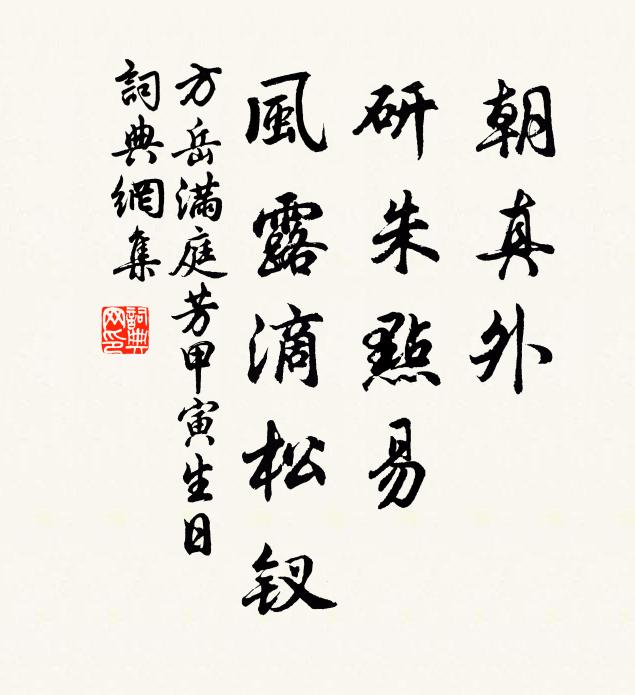 朝真外
研朱點易
風露滴松釵
方岳滿庭芳甲寅生日
詞典網集
詞典网印